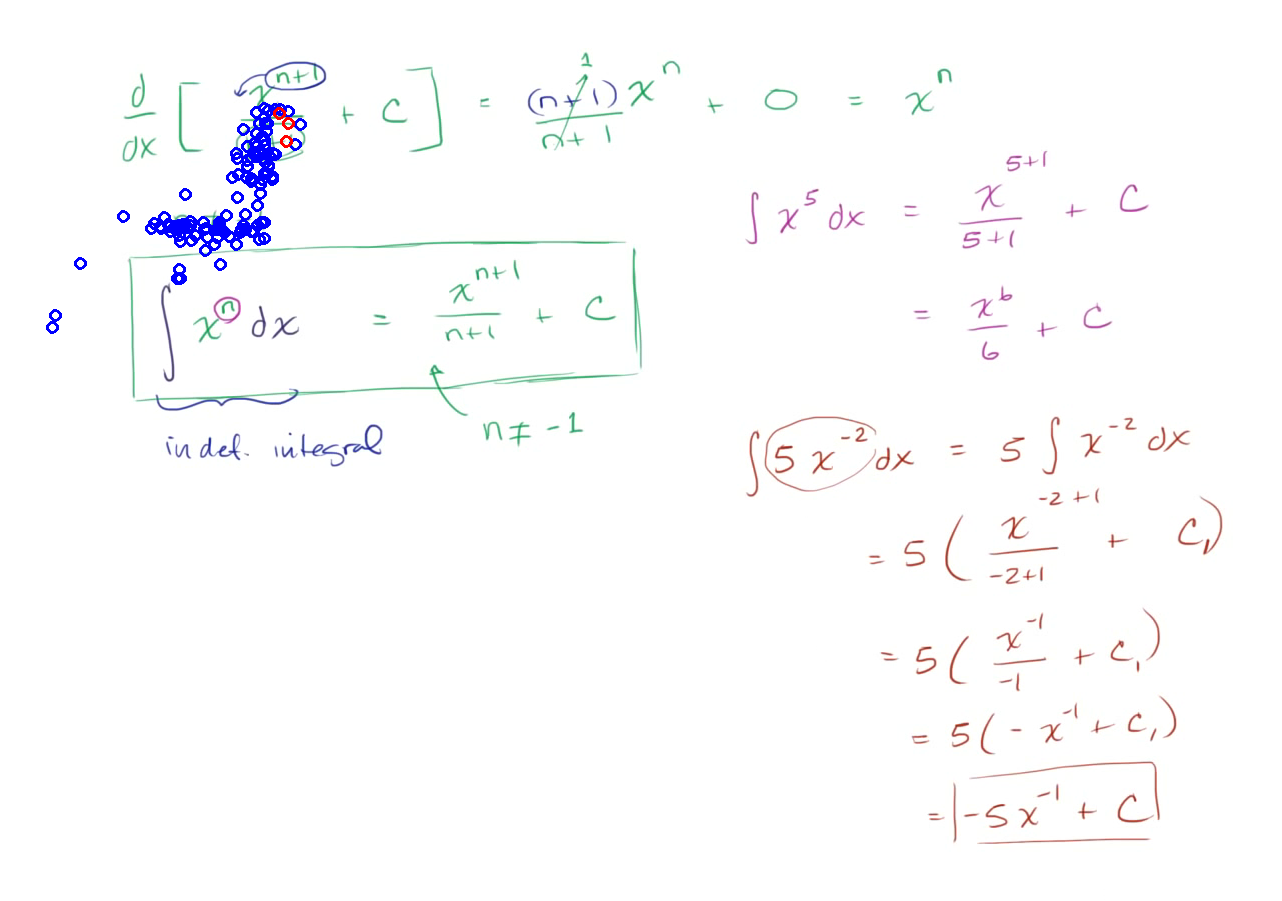 d/dx [ x^(n+1) + C ] = (n+1)/(n+1) x^n + 0 = x^n
1
∫ x^n dx = x^(n+1)/(n+1) + C
n ≠ -1
indef. integral
∫ x^5 dx = x^(5+1)/(5+1) + C
= x^6/6 + C
∫ 5 x^(-2) dx = 5 ∫ x^(-2) dx
= 5 ( x^(-2+1)/(-2+1) + C₁ )
= 5 ( x^(-1)/(-1) + C₁ )
= 5 ( - x^(-1) + C₁ )
= -5x^(-1) + C